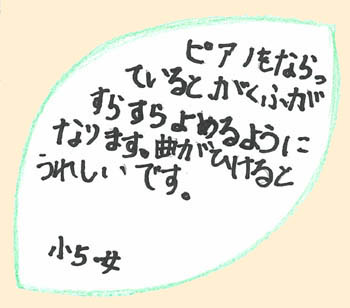 ピアノをならっ
ていると、がくふが
すらすらよめるように
なります。曲がひけると
うれしいです。
小5 女